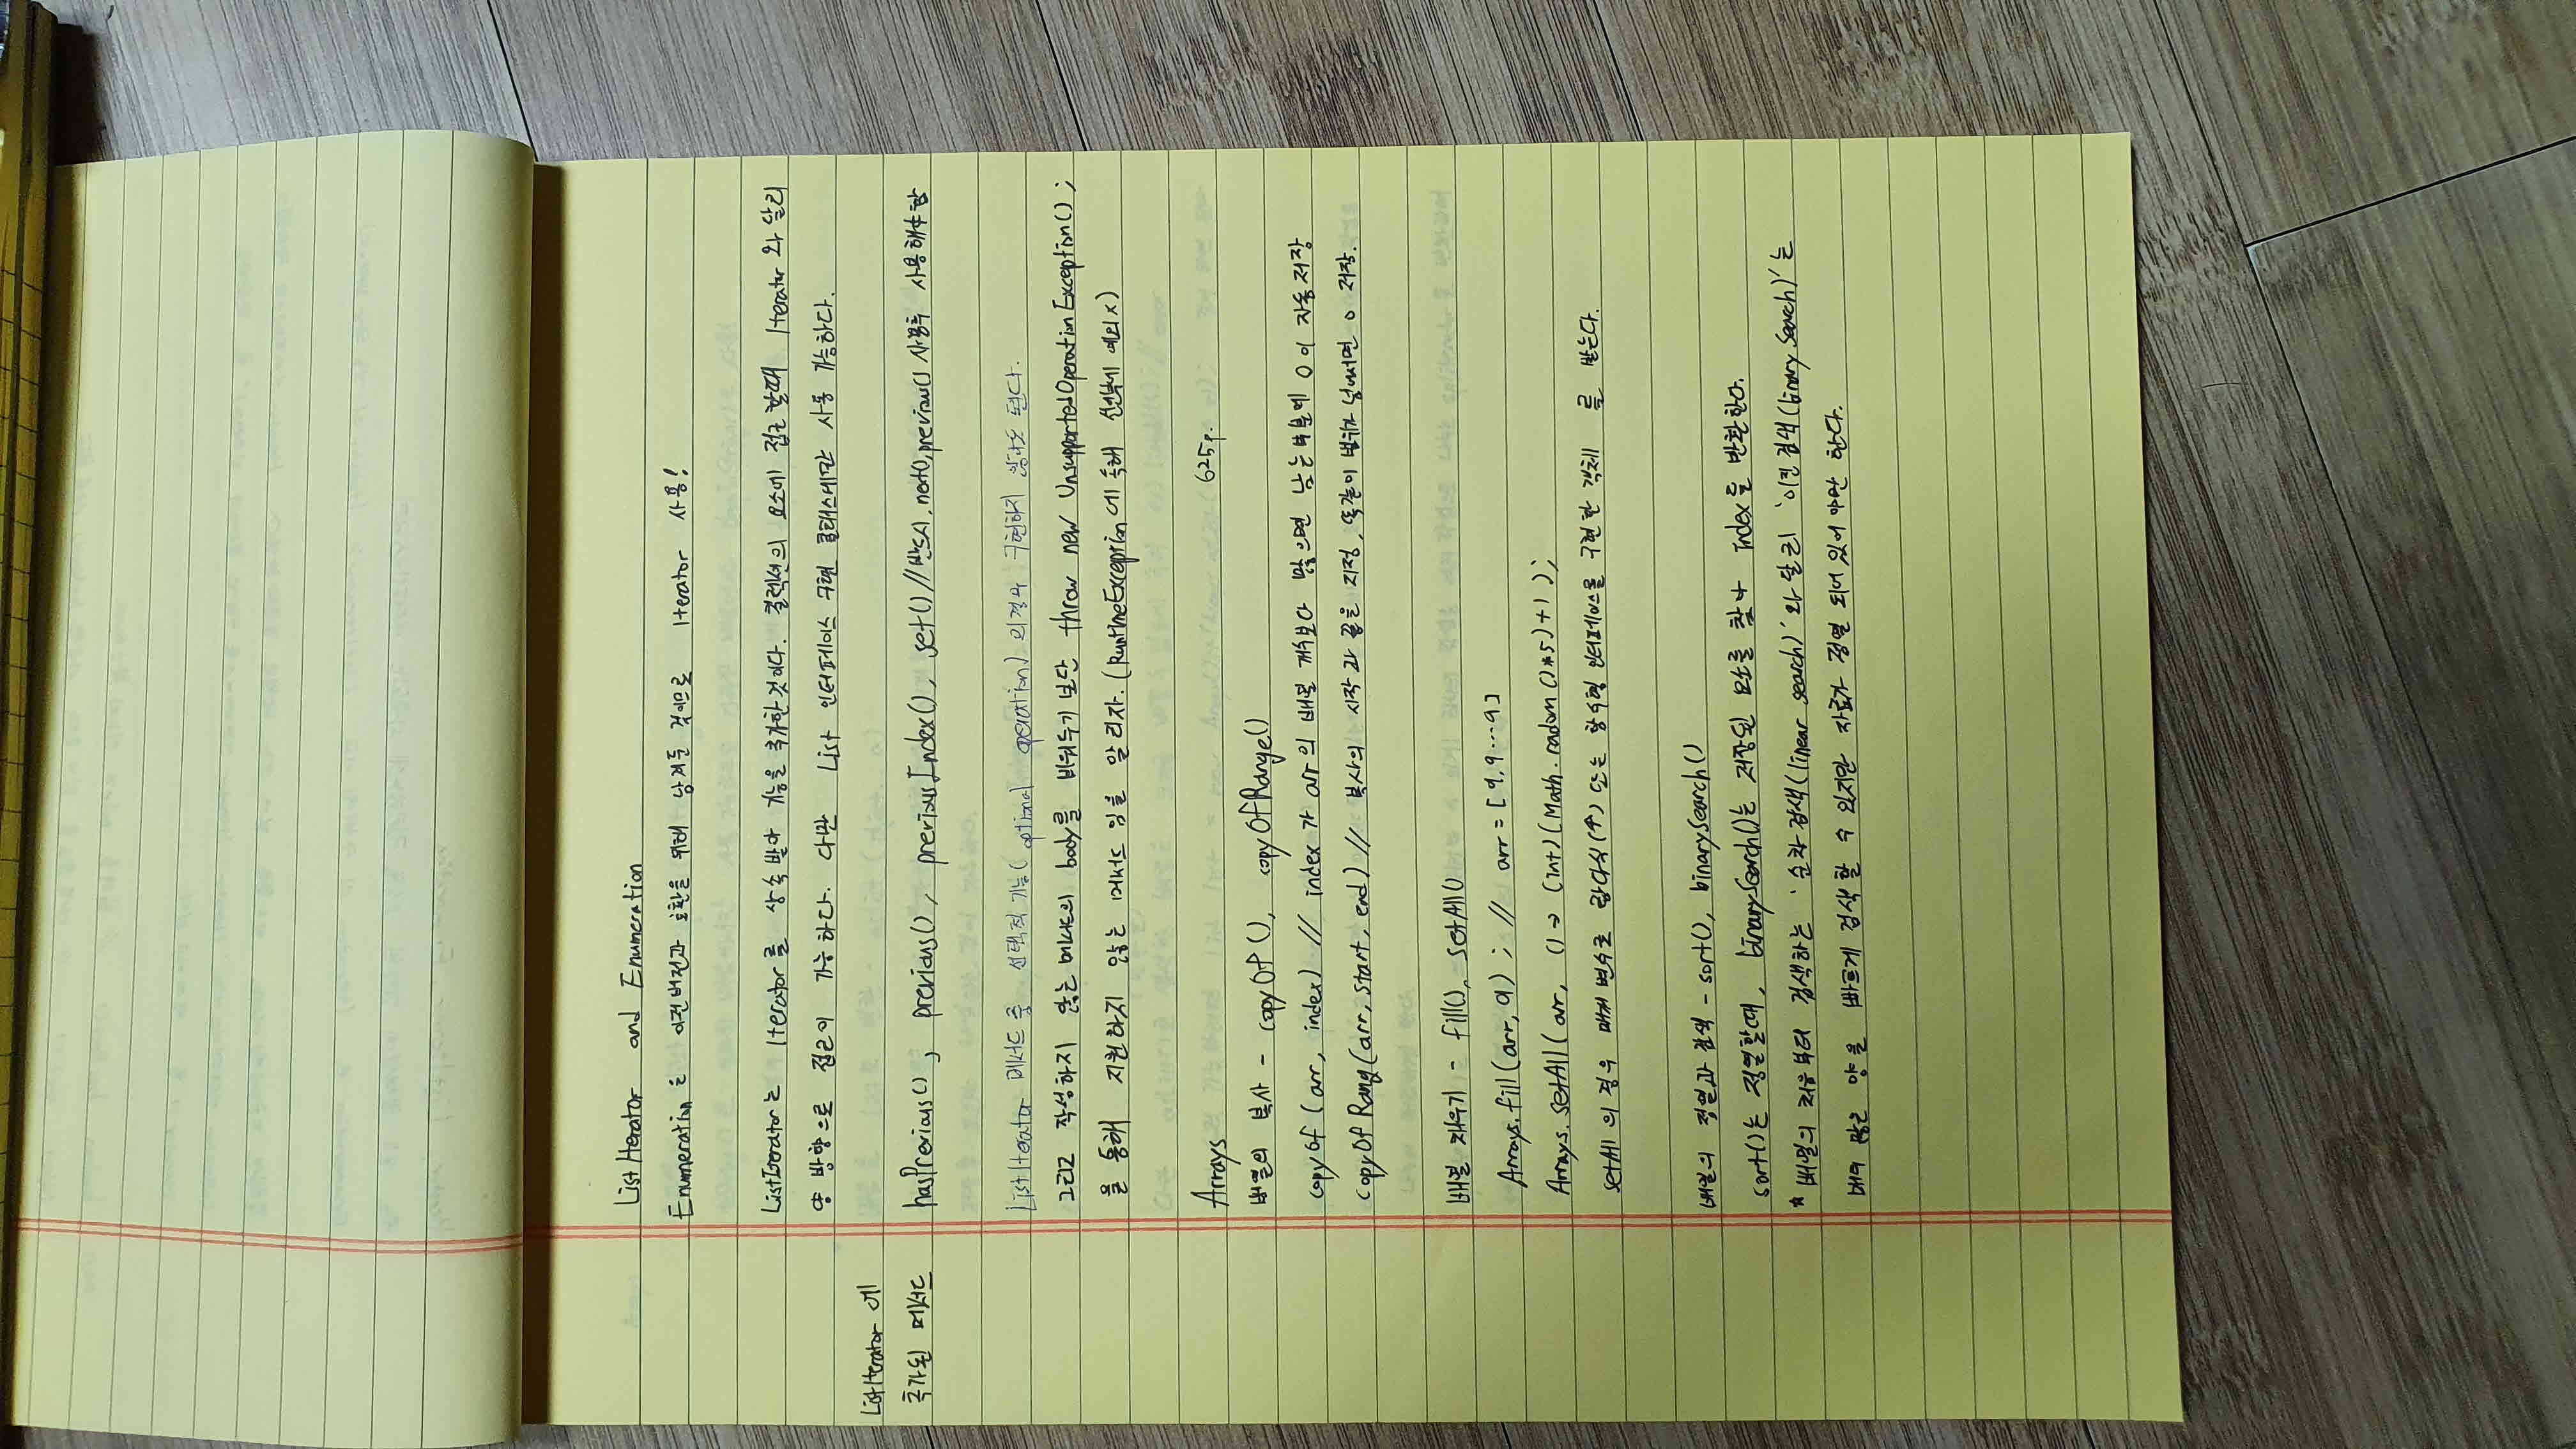 ListIterator and Enumeration
Enumeration는 이전버전과 호환을 위해 남겨둔 것이므로 Iterator 사용!
ListIterator는 Iterator를 상속받아 기능을 추가한것이다. 컬렉션의 요소에 접근할때 Iterator와 달리
양방향으로 접근이 가능하다. 다만 List 인터페이스 구현 클래스에만 사용 가능하다.
ListIterator에
추가된 메서드
hasPrevious(), previous(), previousIndex(), set() // 반드시, next(), previous() 사용후 사용해야함
ListIterator 메서드 중 선택적기능( optional operation) 의경우 구현하지 않아도 된다.
그리고 작성하지 않는 메서드의 body를 비워두기 보단 throw new UnsupportedOperationException();
을 통해 지원하지 않는 메서드 임을 알리자. (RuntimeException에 속해 선언부에 예외x)
Arrays 625p.
배열의 복사 - copyOf(), copyOfRange()
copyOf (arr, index) // index가 arr의 배열 개수보다 많으면 남는부분에 0이 자동저장
copyOfRang(arr, start, end) // 복사의 시작과 끝을 지정, 똑같이 범위가 넘어서면 0 저장.
배열 채우기 - fill(), setAll()
Arrays.fill(arr, 9); // arr = [9,9...9]
Arrays.setAll(arr, () -> (int)(Math.radom()*5)+1);
setAll의 경우 매개변수로 람다식(↑) 또는 함수형 인터페이스를 구현한 객체 를 받는다.
배열의 정열과 검색 - sort(), binarySearch()
sort()는 정열할때, binarySearch()는 저장된 요소를 찾아 index를 반환한다.
* 배열의 처음부터 검색하는 '순차 검색(linear search)'와 달리 '이진 검색(binary search)'는
매우 많은 양을 빠르게 검색할 수 있지만 자료가 정열 되어 있어야만 한다.